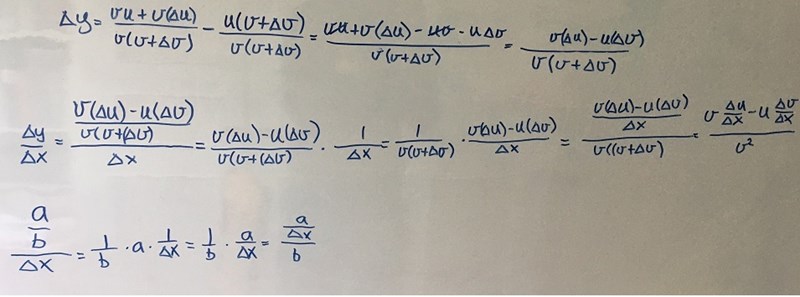 Δy = (vu + v(Δu))/(v(v+Δv)) - (u(v+Δv))/(v(v+Δv)) = (vu + v(Δu) - uv - uΔv)/(v(v+Δv)) = (v(Δu) - u(Δv))/(v(v+Δv))
Δy/Δx = ((v(Δu) - u(Δv))/(v(v+(Δv)))/Δx = (v(Δu) - u(Δv))/(v(v+(Δv)) · 1/Δx = 1/(v(v+Δv)) · (v(Δu) - u(Δv))/Δx = ((v(Δu) - u(Δv))/Δx)/(v((v+Δv)) = (v Δu/Δx - u Δv/Δx)/v²
(a/b)/Δx = 1/b · a · 1/Δx = 1/b · a/Δx = (a/Δx)/b